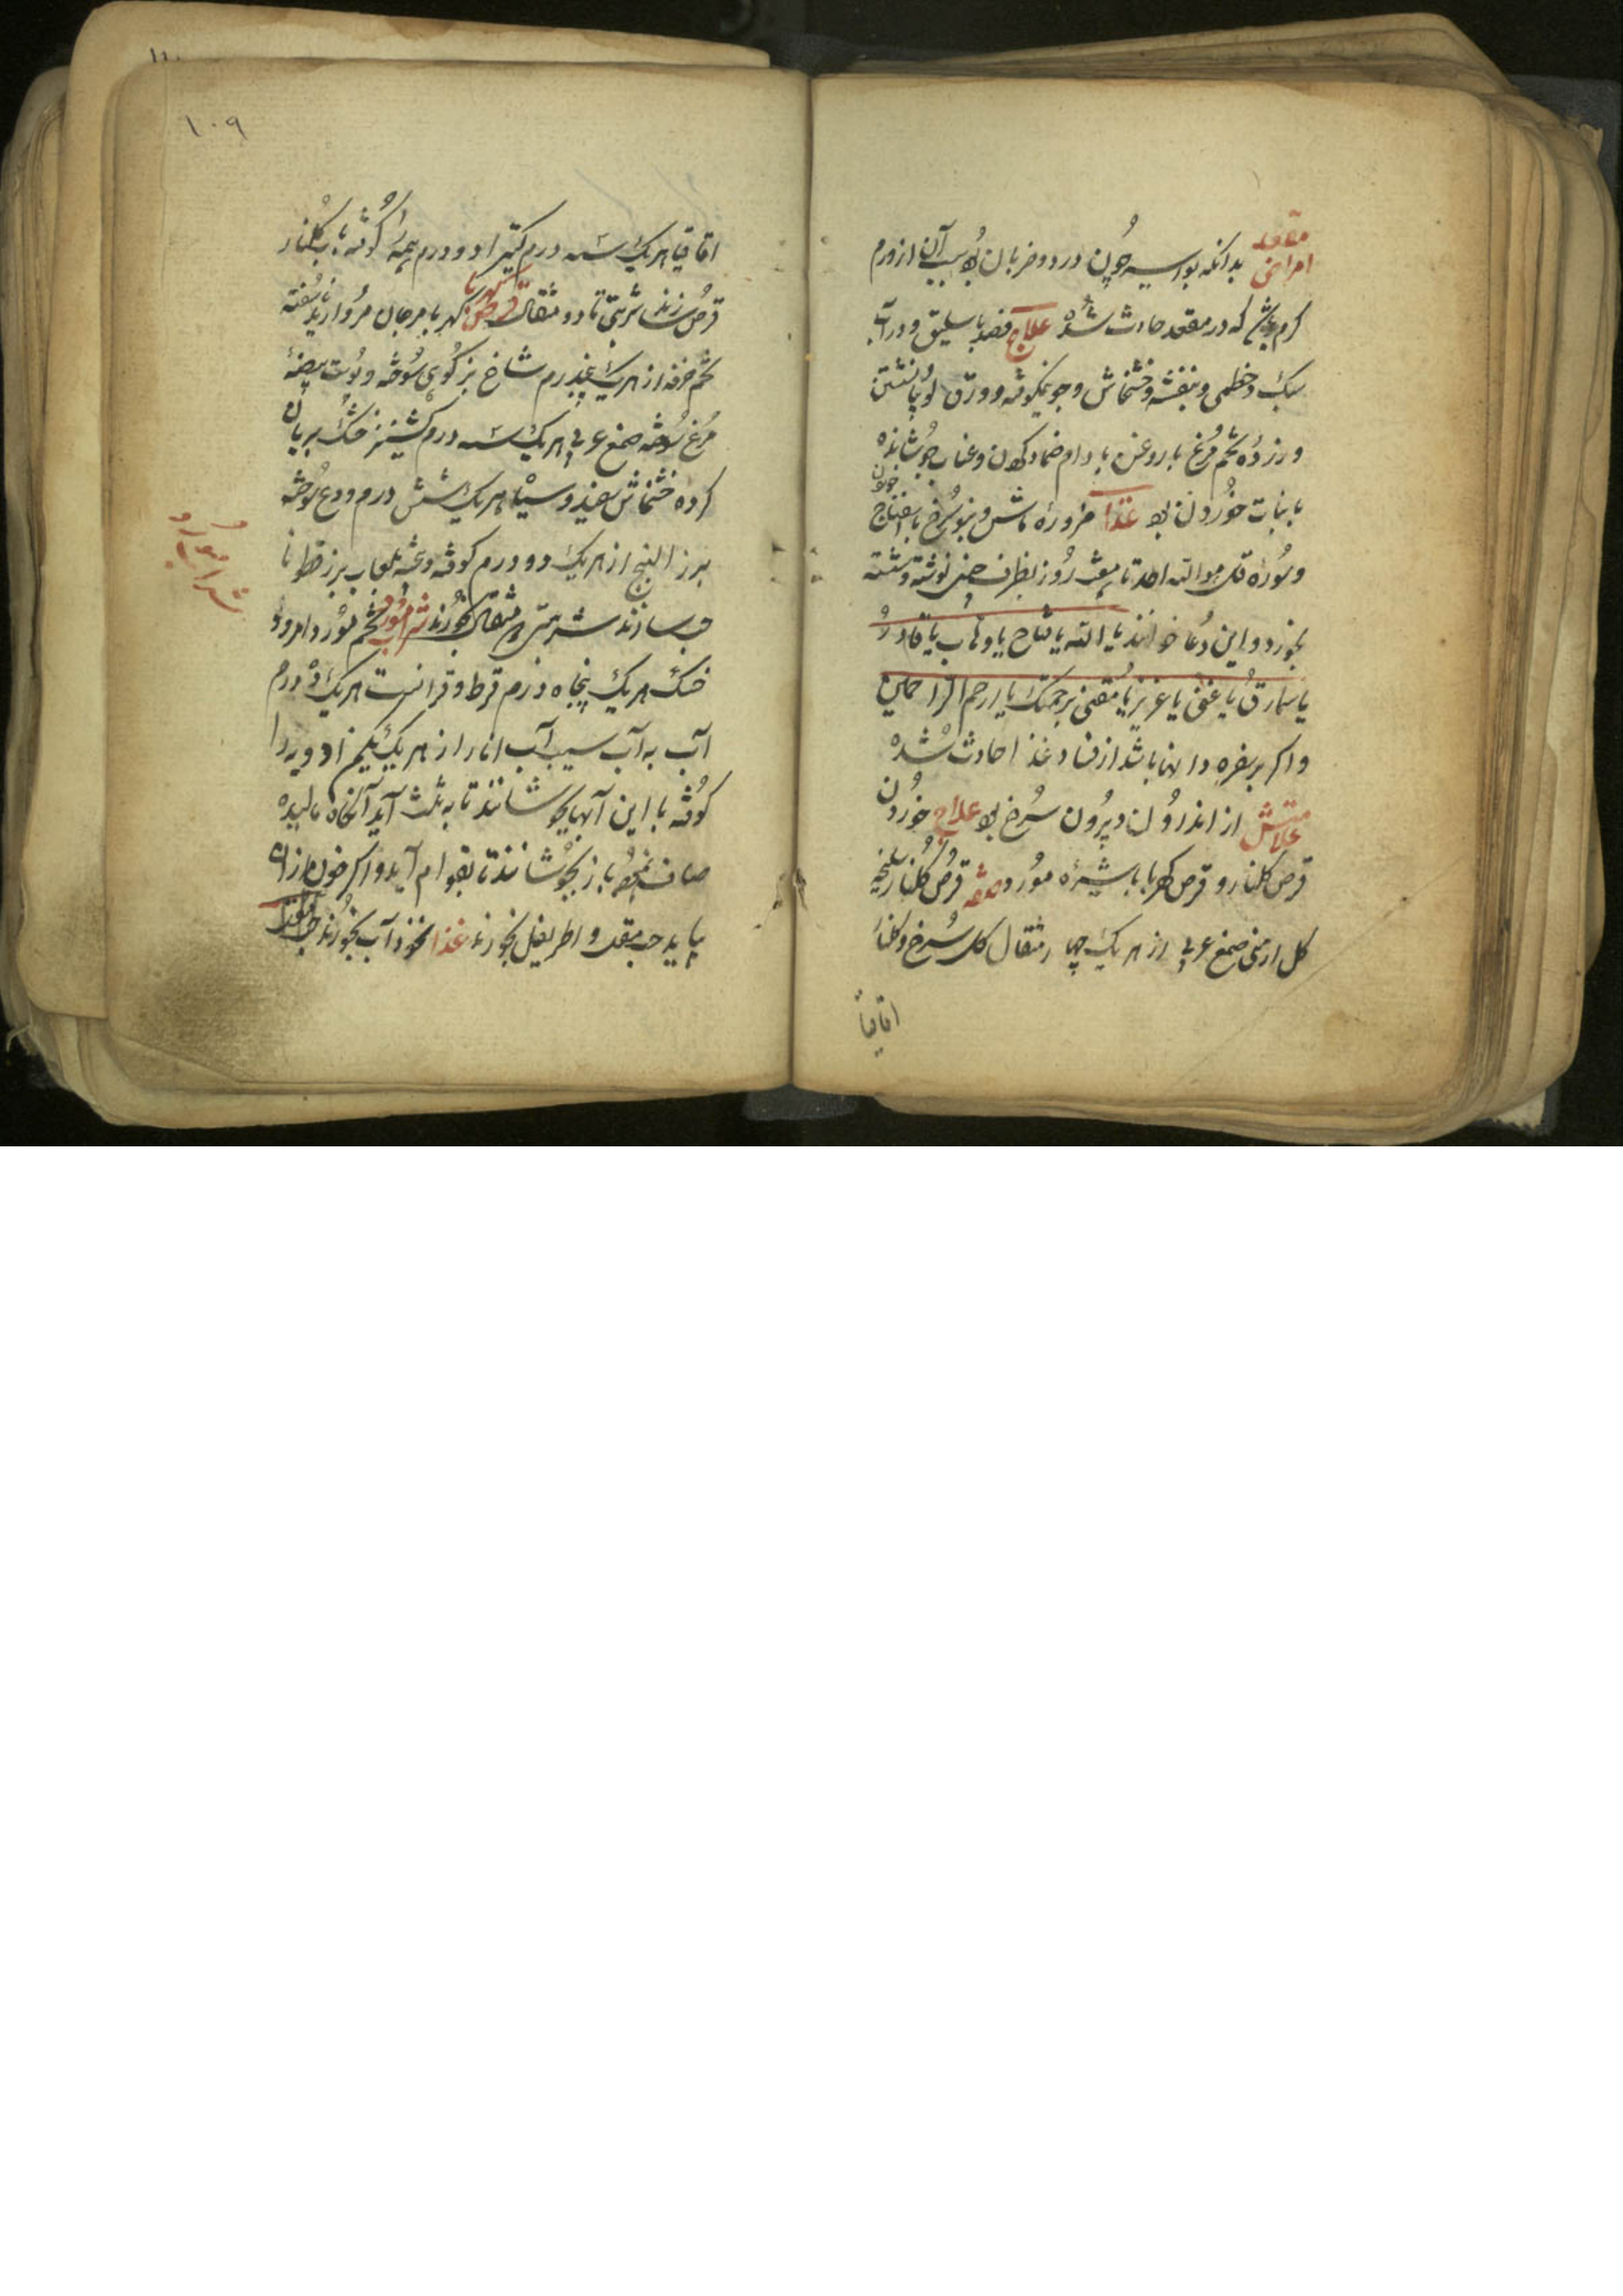 امراض مقعد بدانکه بواسیر چون درد و ضربان بود سبب آن از ورم
کرم باشد که در مقعد حادث شده علاج فصد باسلیق و در آب
خطمی و بنفشه و خشخاش و جو نیمکوفته و ورق نشستن
و زرده تخم مرغ با روغن بادام ضماد کردن و عناب جوشانده
با نبات خوردن بود غذا مزوره ماش و سرخ با اسفناج خوردن
و سوره قل هو الله احد تا هفت روز بظرف چینی نوشته و شسته
بخورد و این دعا خواند یا الله یا فتاح یا وهاب یا قادر
یا غنی یا عزیز یا مغنی برحمتک یا ارحم الراحمین
و اگر بر مقعد باشد از فساد غذا حادث شده
علامتش از اندرون و بیرون سرخ بود علاج خوردن
قرص گلنار و قرص کهربا با شیره مورد صفه قرص گلنار
گل ارمنی صمغ عربی از هر یک چهار مثقال گل سرخ و گلنار
اقاقیا
۱۰۹
اقاقیا هر یک سه درم کتیرا دو درم همه را کوفته بآب گلنار
قرص سازند شربتی تا دو مثقال قرص کهربا کهربا مرجان مروارید ناسفته
تخم خرفه از هر یک پنجدرم شاخ بز کوهی سوخته و پوست بیضه
مرغ سوخته صمغ عربی هر یک سه درم کشنیز خشک بریان
کرده خشخاش سفید و سیاه هر یک شش درم ودع سوخته
بزر البنج از هر یک دو درم کوفته و بیخته بلعاب بزر قطونا
حب سازند شربتی مثقال بخورند شراب مورد تخم مورد امرود
خشک هر یک پنجاه درم قرط و قرانست هر یک ده درم
آب به آب سیب آب انار از هر یک یکمن ادویه را
کوفته با این آبها بجوشانند تا به ثلث آید آنگاه مالیده
صاف نموده باز بجوشانند تا بقوام آید و اگر خون از
بیاید حب مقل و اطریفل بخورند غذا نخود آب بخورند
شراب مورد